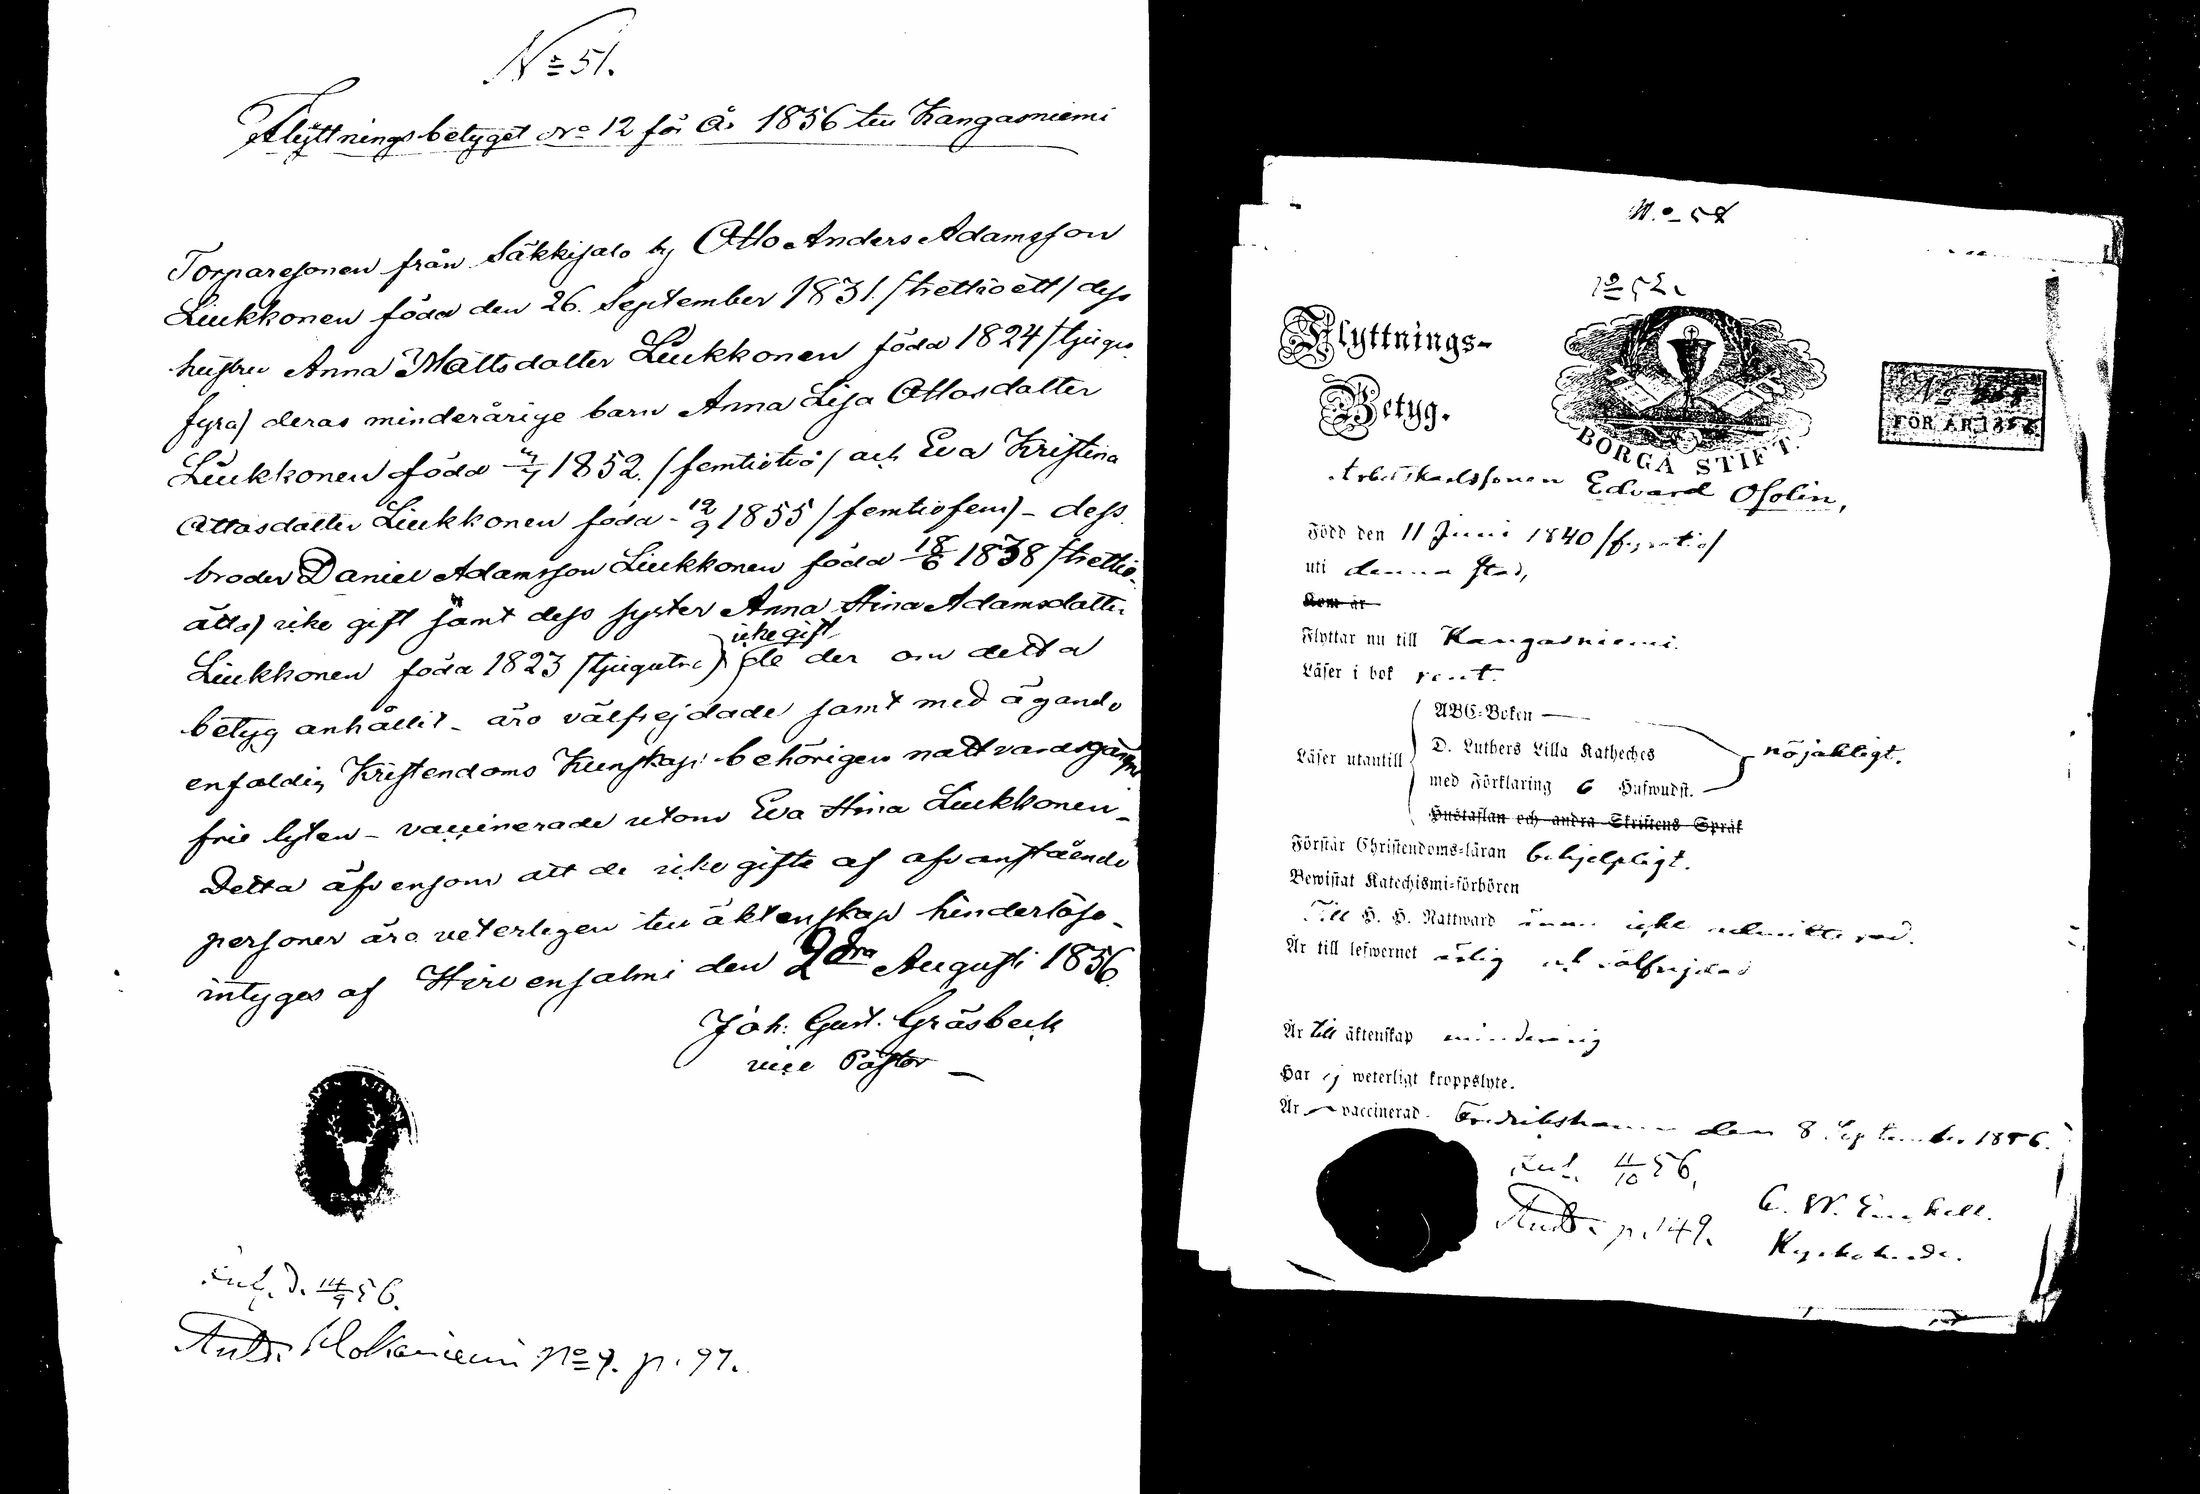 No 51.
Flyttningsbetyget No 12 för År 1856 till Kangasniemi
Torparesonen från Säkkisalo by Otto Anders Adamsson
Liukkonen född den 26. September 1831. /trettioett/ dess
hustru Anna Mattsdotter Liukkonen född 1824 /tjugu
fyra/ deras minderårige barn Anna Lisa Ottosdotter
Liukkonen född 1852. /femtiotvå/ och Eva Kristina
Ottosdotter Liukkonen född 12/9 1855 /femtiofem/ - dess
broder Daniel Adamsson Liukkonen född 18/6 1838 /trettio-
åtta/ icke gift samt dess syster Anna Stina Adamsdotter
icke gift
Liukkonen född 1823 /tjugutre/ de der om detta
betyg anhållit - äro välfrejdade samt med ägande
enfaldig Kristendoms Kunskap behörigen nattvardsgångne
frie lyten - vaccinerade utom Eva Stina Liukkonen -
Detta äfvensom att de icke gifte af ofvanstående
personer äro veterligen till äktenskap hinderlöse -
intygas af Hirvensalmi den 2dra Augusti 1856.
Joh: Gust. Gråsbeck
vice Pastor
Inl. d. 14/9 56.
Antt. No 9. p. 97.
No 52.
Flyttnings-
Betyg.
BORGÅ STIFT.
No
FÖR ÅR 1856
Arbetskarlssonen Edvard Osolin,
Född den 11 Juni 1840 /fyratio/
uti denna stad,
Kom år
Flyttar nu till Kangasniemi.
Läser i bok rent.
Läser utantill
ABC-Boken
D. Luthers Lilla Katheches
med Förklaring 6 Hufwudst.
nöjaktigt.
Hustaflan och andra Skriftens Språk
Förstår Christendoms-läran behjelpligt.
Bewistat Katechismi-förhören
Till H. H. Nattward ännu icke admitterad.
Är till lefwernet ärlig och välfrejdad
Är till äktenskap minderårig
Har ej weterligt kroppslyte.
Är vaccinerad. Fredrikshamn den 8 September 1856.
Inl. 11/10 56.
Antt. p. 149.
Kyrkoherde.